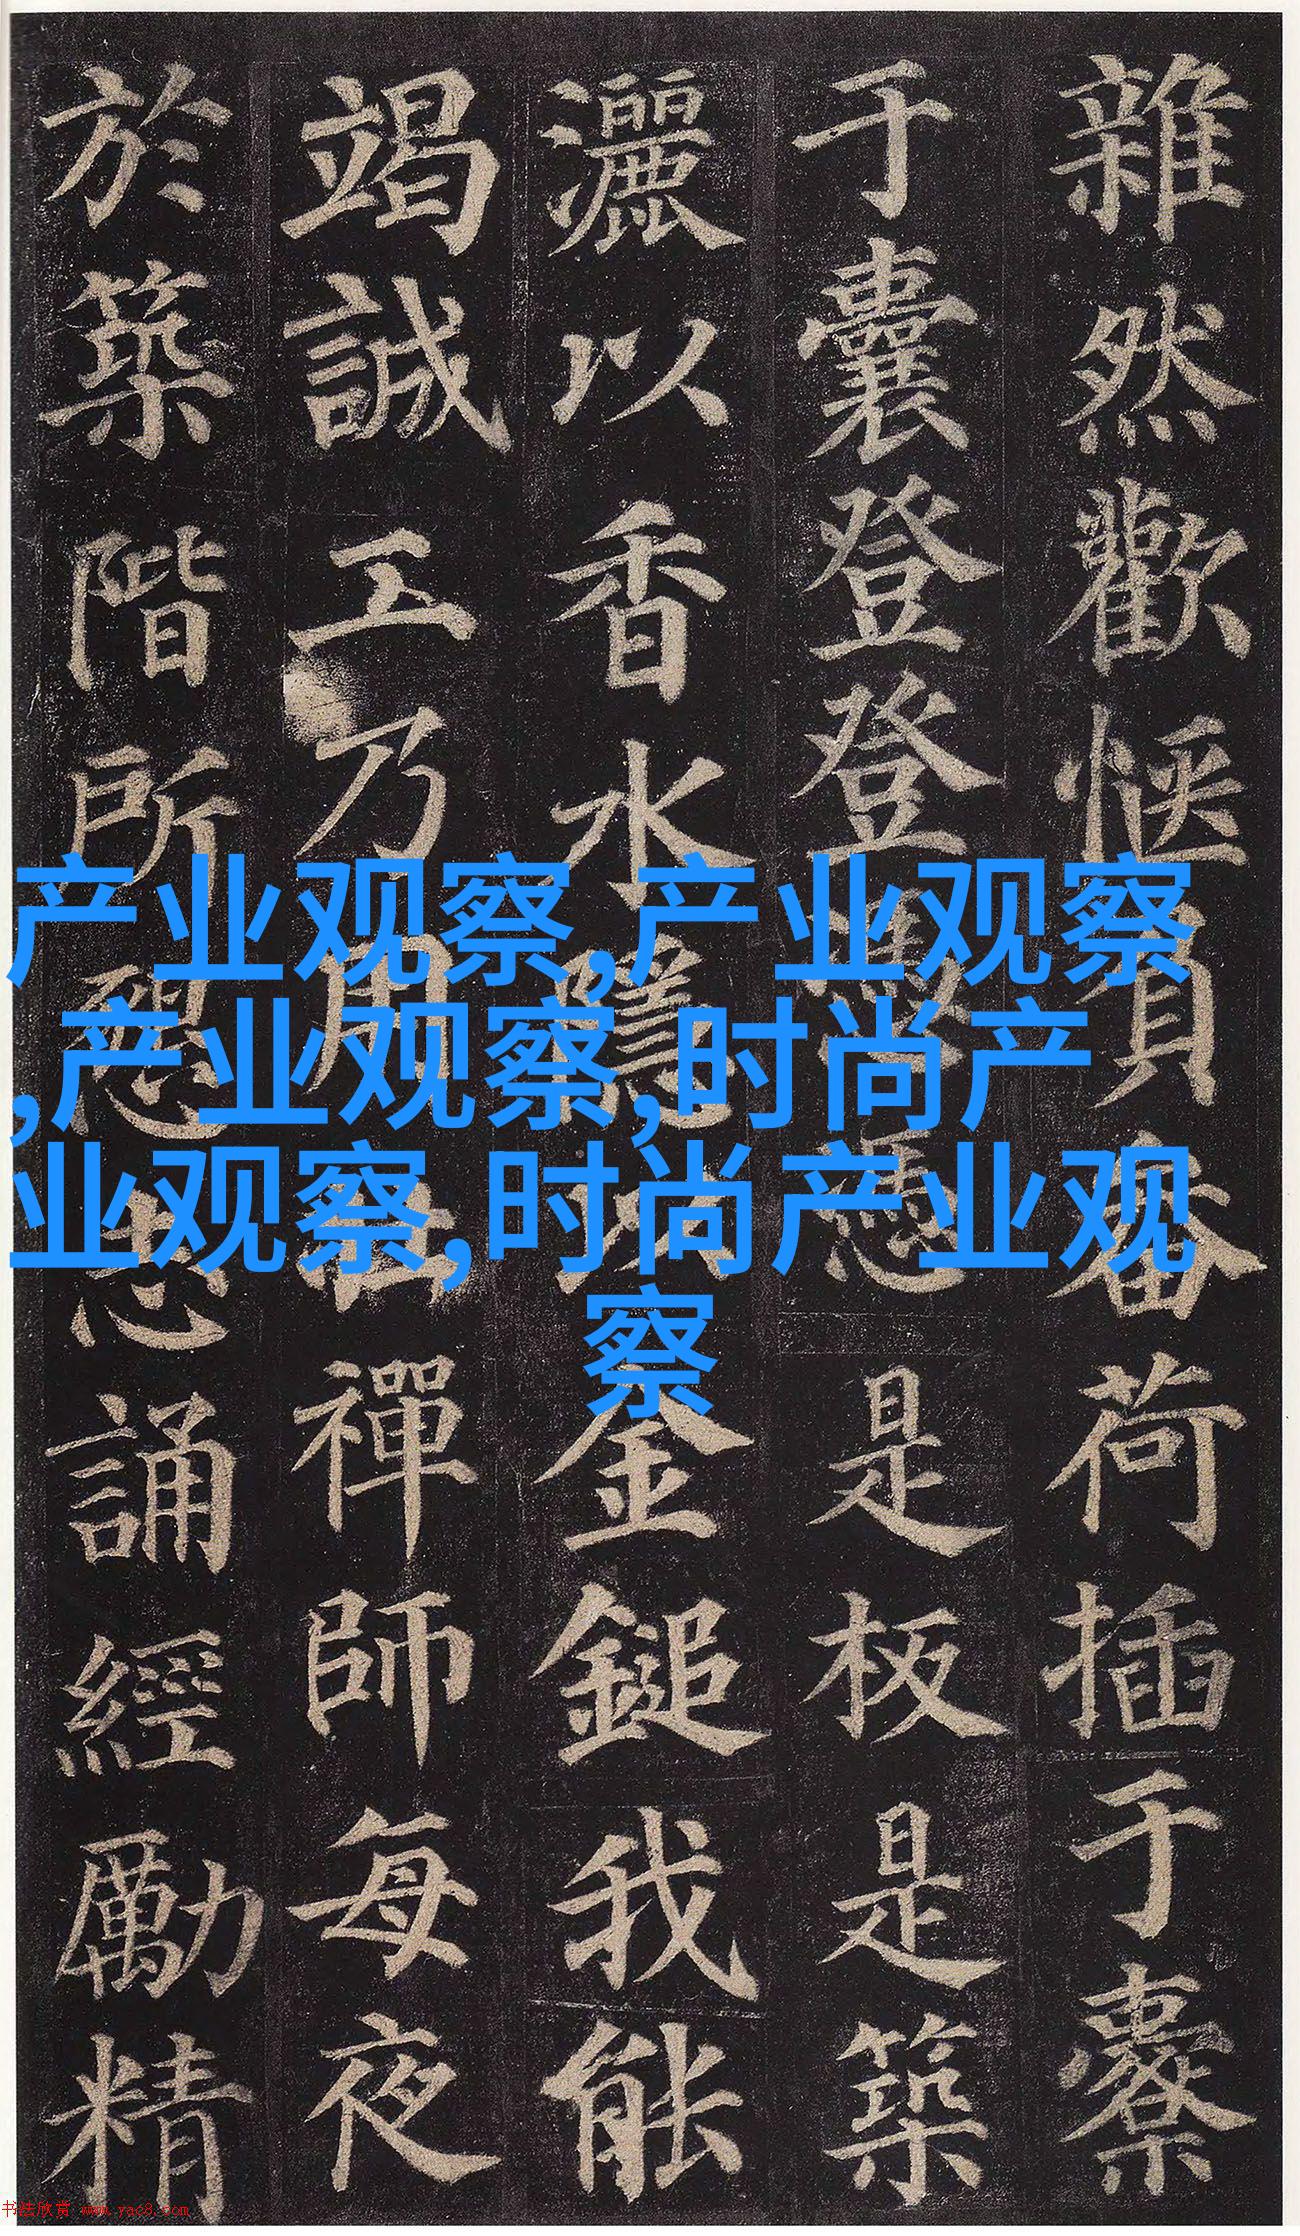 雜然歡愜負畚荷插于橐
于囊登登憑憑是板是築
灑以香水隱以金鎚我能
竭誠工乃用壯禪師每夜
於築階所懇志誦經勵精
产业观察,产业观察
,产业观察,时尚产
业观察,时尚产业观
察
书法欣赏 www.yac8.com